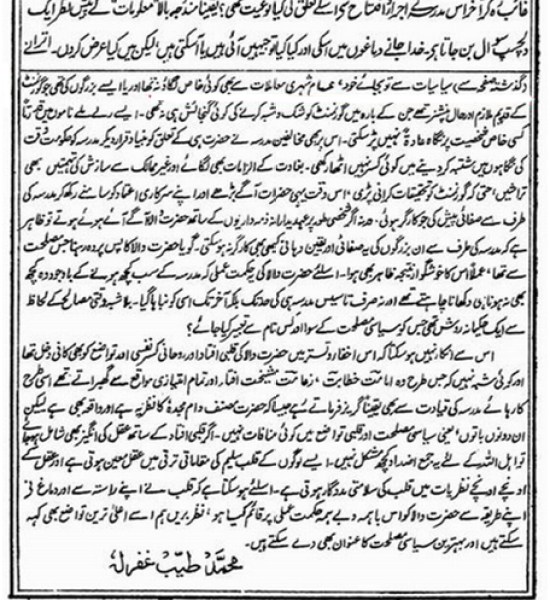 دلچسپ سوال بن جاتا ہی۔ خدا جانے دماغوں میں اسکی اور کیا کیا توجیہیں آئی ہیں یا آسکتی ہیں لیکن میں کیا عرض کروں۔
(گذشتہ صفحہ سے) سیاسیات سے تو بجائے خود، عام شہری معاملات سے بھی کوئی خاص لگاؤ نہ تھا اور یا ایسے بزرگوں کی تھی جو گورنمنٹ
کے قدیم ملازم اور حال پنشنر تھے جن کے بارہ میں گورنمنٹ کو شک و شبہ کرنے کی کوئی گنجائش ہی نہ تھی۔ ایسے
کسی خاص شخصیت پر نگاہ عادۃً نہیں پڑ سکتی۔ اس پر بھی مخالفین مدرسہ نے حضرت ہی کے تعلق کو بنیاد قرار دیکر مدرسہ کو حکومت وقت
کی نگاہوں میں مشتبہ کر دینے میں کوئی کسر نہیں اٹھا رکھی۔ بغاوت کے الزامات بھی لگائے اور غیر ممالک سے سازش کی تہمتیں بھی
تراشیں حتی کہ گورنمنٹ کو تحقیقات کرانی پڑی، اس وقت یہی حضرات آگے بڑھے اور اپنے سرکاری اعتماد کو سامنے رکھ کر مدرسہ کی
طرف سے صفائی پیش کی جو کارگر ہوئی۔ ورنہ اگر شخصی طور پر عہدیدارانہ ذمہ داریوں کے ساتھ حضرت والا آگے آئے ہوئے ہوتے تو ظاہر
ہے کہ مدرسہ کی طرف سے ان بزرگوں کی یہ صفائی اور یقین دہانی کبھی بھی کارگر نہ ہو سکتی۔ گویا حضرت والا کا پس پردہ رہنا جس مصلحت
سے تھا، عملاً اس کا خوشگوار نتیجہ ظاہر بھی ہوا۔ اسلئے حضرت والا کی یہ حکمت عملی کہ مدرسہ کے سب کچھ ہونے کے باوجود وہ کچھ
بھی نہ ہونا ہی دکھانا چاہتے تھے اور نہ صرف تاسیس مدرسہ ہی کی حد تک بلکہ آخر تک اسی کو نباہا گیا۔ بلا شبہ وقتی مصالح کے لحاظ
سے ایک حکیمانہ روش تھی جس کو سیاسی مصلحت کے سوا اور کس نام سے تعبیر کیا جائے؟
اس سے انکار نہیں ہو سکتا کہ اس اخفاء و تستر میں حضرت والا کی قلبی افتاد اور روحانی کسر نفسی اور تواضع کو بھی کافی دخل تھا
اور کوئی شبہ نہیں کہ جس طرح وہ امامت، خطابت، زعامت، مشیخت، افتاء اور تمام امتیازی مواقع سے گھبراتے تھے اسی طرح
کارہائے مدرسہ کی قیادت سے بھی یقیناً گریز فرماتے تھے جیسا کہ حضرت مصنف دام مجدہ کا نظریہ ہے اور واقعہ بھی ہے لیکن
ان دونوں باتوں، یعنی سیاسی مصلحت اور قلبی تواضع میں کوئی منافات نہیں۔ اگر قلبی افتاد کے ساتھ عقل کی انگیز بھی شامل ہو جائے
تو اہل اللہ کے لئے یہ جمع اضداد کچھ مشکل نہیں۔ ایسے لوگوں کے قلب سلیم کی مقاماتی ترقی میں عقل معین ہوتی ہے اور عقل کے
اونچے اونچے نظریات میں قلب کی سلامتی مددگار ہوتی ہے۔ اسلئے ہو سکتا ہے کہ قلب نے اپنے راستہ سے اور دماغ نے
اپنے طریقہ سے حضرت والا کو اس با ہمہ و بے ہمہ حکمت عملی پر قائم کیا ہو، نظر بریں ہم اسے اعلیٰ ترین تواضع بھی کہہ
سکتے ہیں اور بہترین سیاسی مصلحت کا عنوان بھی دے سکتے ہیں۔
محمد طیب غفرلہ